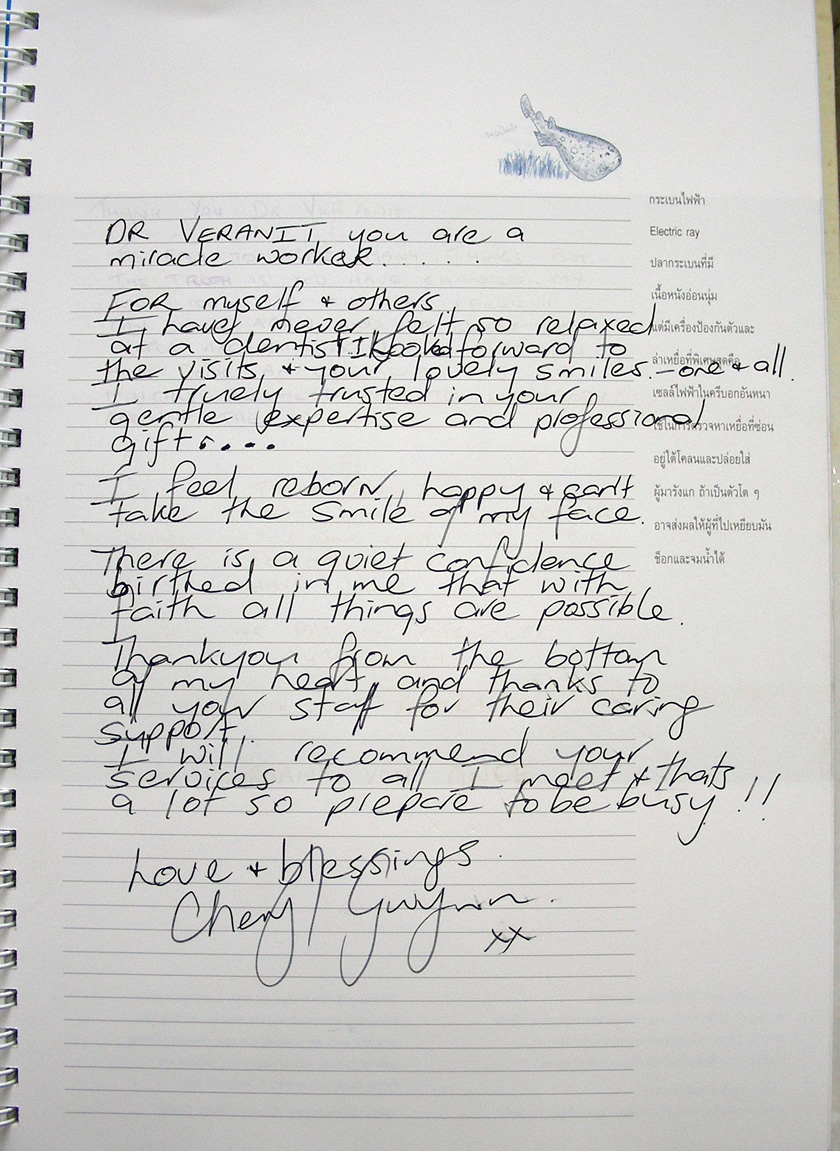 กระเบนไฟฟ้า
Electric ray
ปลากระเบนที่มี
เนื้อหนังอ่อนนุ่ม
แต่มีเครื่องป้องกันตัวและ
ล่าเหยื่อที่พิเศษสุดคือ
เซลล์ไฟฟ้าในครีบอกอันหนา
ใช้ในการตรวจหาเหยื่อที่ซ่อน
อยู่ใต้โคลนและปล่อยใส่
ผู้มารังแก ถ้าเป็นตัวโต ๆ
อาจส่งผลให้ผู้ที่ไปเหยียบมัน
ช็อกและจมน้ำได้
DR VERANIT you are a
miracle worker. . . . .
FOR myself + others
I have never felt so relaxed
at a dentist I looked forward to
the visits, + your lovely smiles. – one + all.
I truely trusted in your
gentle expertise and professional
gift....
I feel reborn, happy + can't
take the smile of my face.
There is a quiet confidence
birthed in me that with
faith all things are possible.
Thankyou from the bottom
of my heart, and thanks to
all your staff for their caring
support.
I will recommend your
services to all I meet + thats
a lot so prepare to be busy!!
Love + blessings.
Cheryl Gwynn.
xx